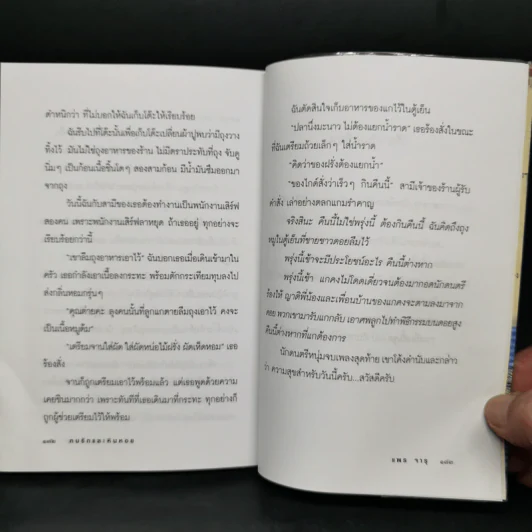 ตำหนิกว่า ที่ไม่บอกให้ฉันเก็บโต๊ะให้เรียบร้อย
ฉันรีบไปที่โต๊ะนั้นเพื่อเก็บโต๊ะเปลี่ยนผ้าปูพบว่ามีถุงวาง
ทิ้งไว้ มันไม่ใช่ถุงอาหารของร้าน ไม่มีตราประทับที่ถุง จับดู
นิ่มๆ เป็นก้อนเนื้อชิ้นโตๆ สองสามก้อน มีน้ำมันซึมออกมา
จากถุง
วันนี้ฉันกับสามีของเธอต้องทำงานเป็นพนักงานเสิร์ฟ
สองคน เพราะพนักงานเสิร์ฟลาหยุด ถ้าเธออยู่ ทุกอย่างจะ
เรียบร้อยกว่านี้
"เขาลืมถุงอาหารเอาไว้" ฉันบอกเธอเมื่อเดินเข้ามาใน
ครัว เธอกำลังเอาเนื้อลงกระทะ พร้อมตักกระเทียมทุบลงไป
ส่งกลิ่นหอมกรุ่นๆ
"คุณต่ายคะ ลุงคนนั้นที่ลูกแกตายลืมถุงเอาไว้ คงจะ
เป็นเนื้อหมูต้ม"
"เตรียมจานใส่ผัด ใส่ผัดหน่อไม้ฝรั่ง ผัดเห็ดหอม" เธอ
ร้องสั่ง
จานก็ถูกเตรียมเอาไว้พร้อมแล้ว แต่เธอพูดด้วยความ
เคยชินมากกว่า เพราะทันทีที่เธอเดินมาที่กระทะ ทุกอย่างก็
ถูกผู้ช่วยเตรียมไว้ให้พร้อม
ฉันตัดสินใจเก็บอาหารของแกไว้ในตู้เย็น
"ปลานึ่งมะนาว ไม่ต้องแยกน้ำราด" เธอร้องสั่งในขณะ
ที่ฉันเตรียมถ้วยเล็กๆ ใส่น้ำราด
"คิดว่าของฝรั่งต้องแยกน้ำ"
"ของไกด์สั่งว่าเร็วๆ กินคืนนี้" สามีเจ้าของร้านผู้รับ
คำสั่ง เล่าอย่างตลกแกมรำคาญ
จริงสินะ คืนนี้ไม่ใช่พรุ่งนี้ ต้องกินคืนนี้ ฉันคิดถึงถุง
หมูในตู้เย็นที่ชายชาวดอยลืมไว้
พรุ่งนี้เช้าจะมีประโยชน์อะไร คืนนี้ต่างหาก
พรุ่งนี้เช้า แกคงไม่โดดเดี่ยวจนต้องมากอดนักดนตรี
ร้องไห้ ญาติพี่น้องและเพื่อนบ้านของแกคงจะตามลงมาจาก
ดอย พวกเขามารับแกกลับ เอาศพลูกไปทำพิธีกรรมบนดอยสูง
คืนนี้ต่างหากที่แกต้องการ
นักดนตรีหนุ่มจบเพลงสุดท้าย เขาโค้งคำนับและกล่าว
ว่า ความสุขสำหรับวันนี้ครับ...สวัสดีครับ